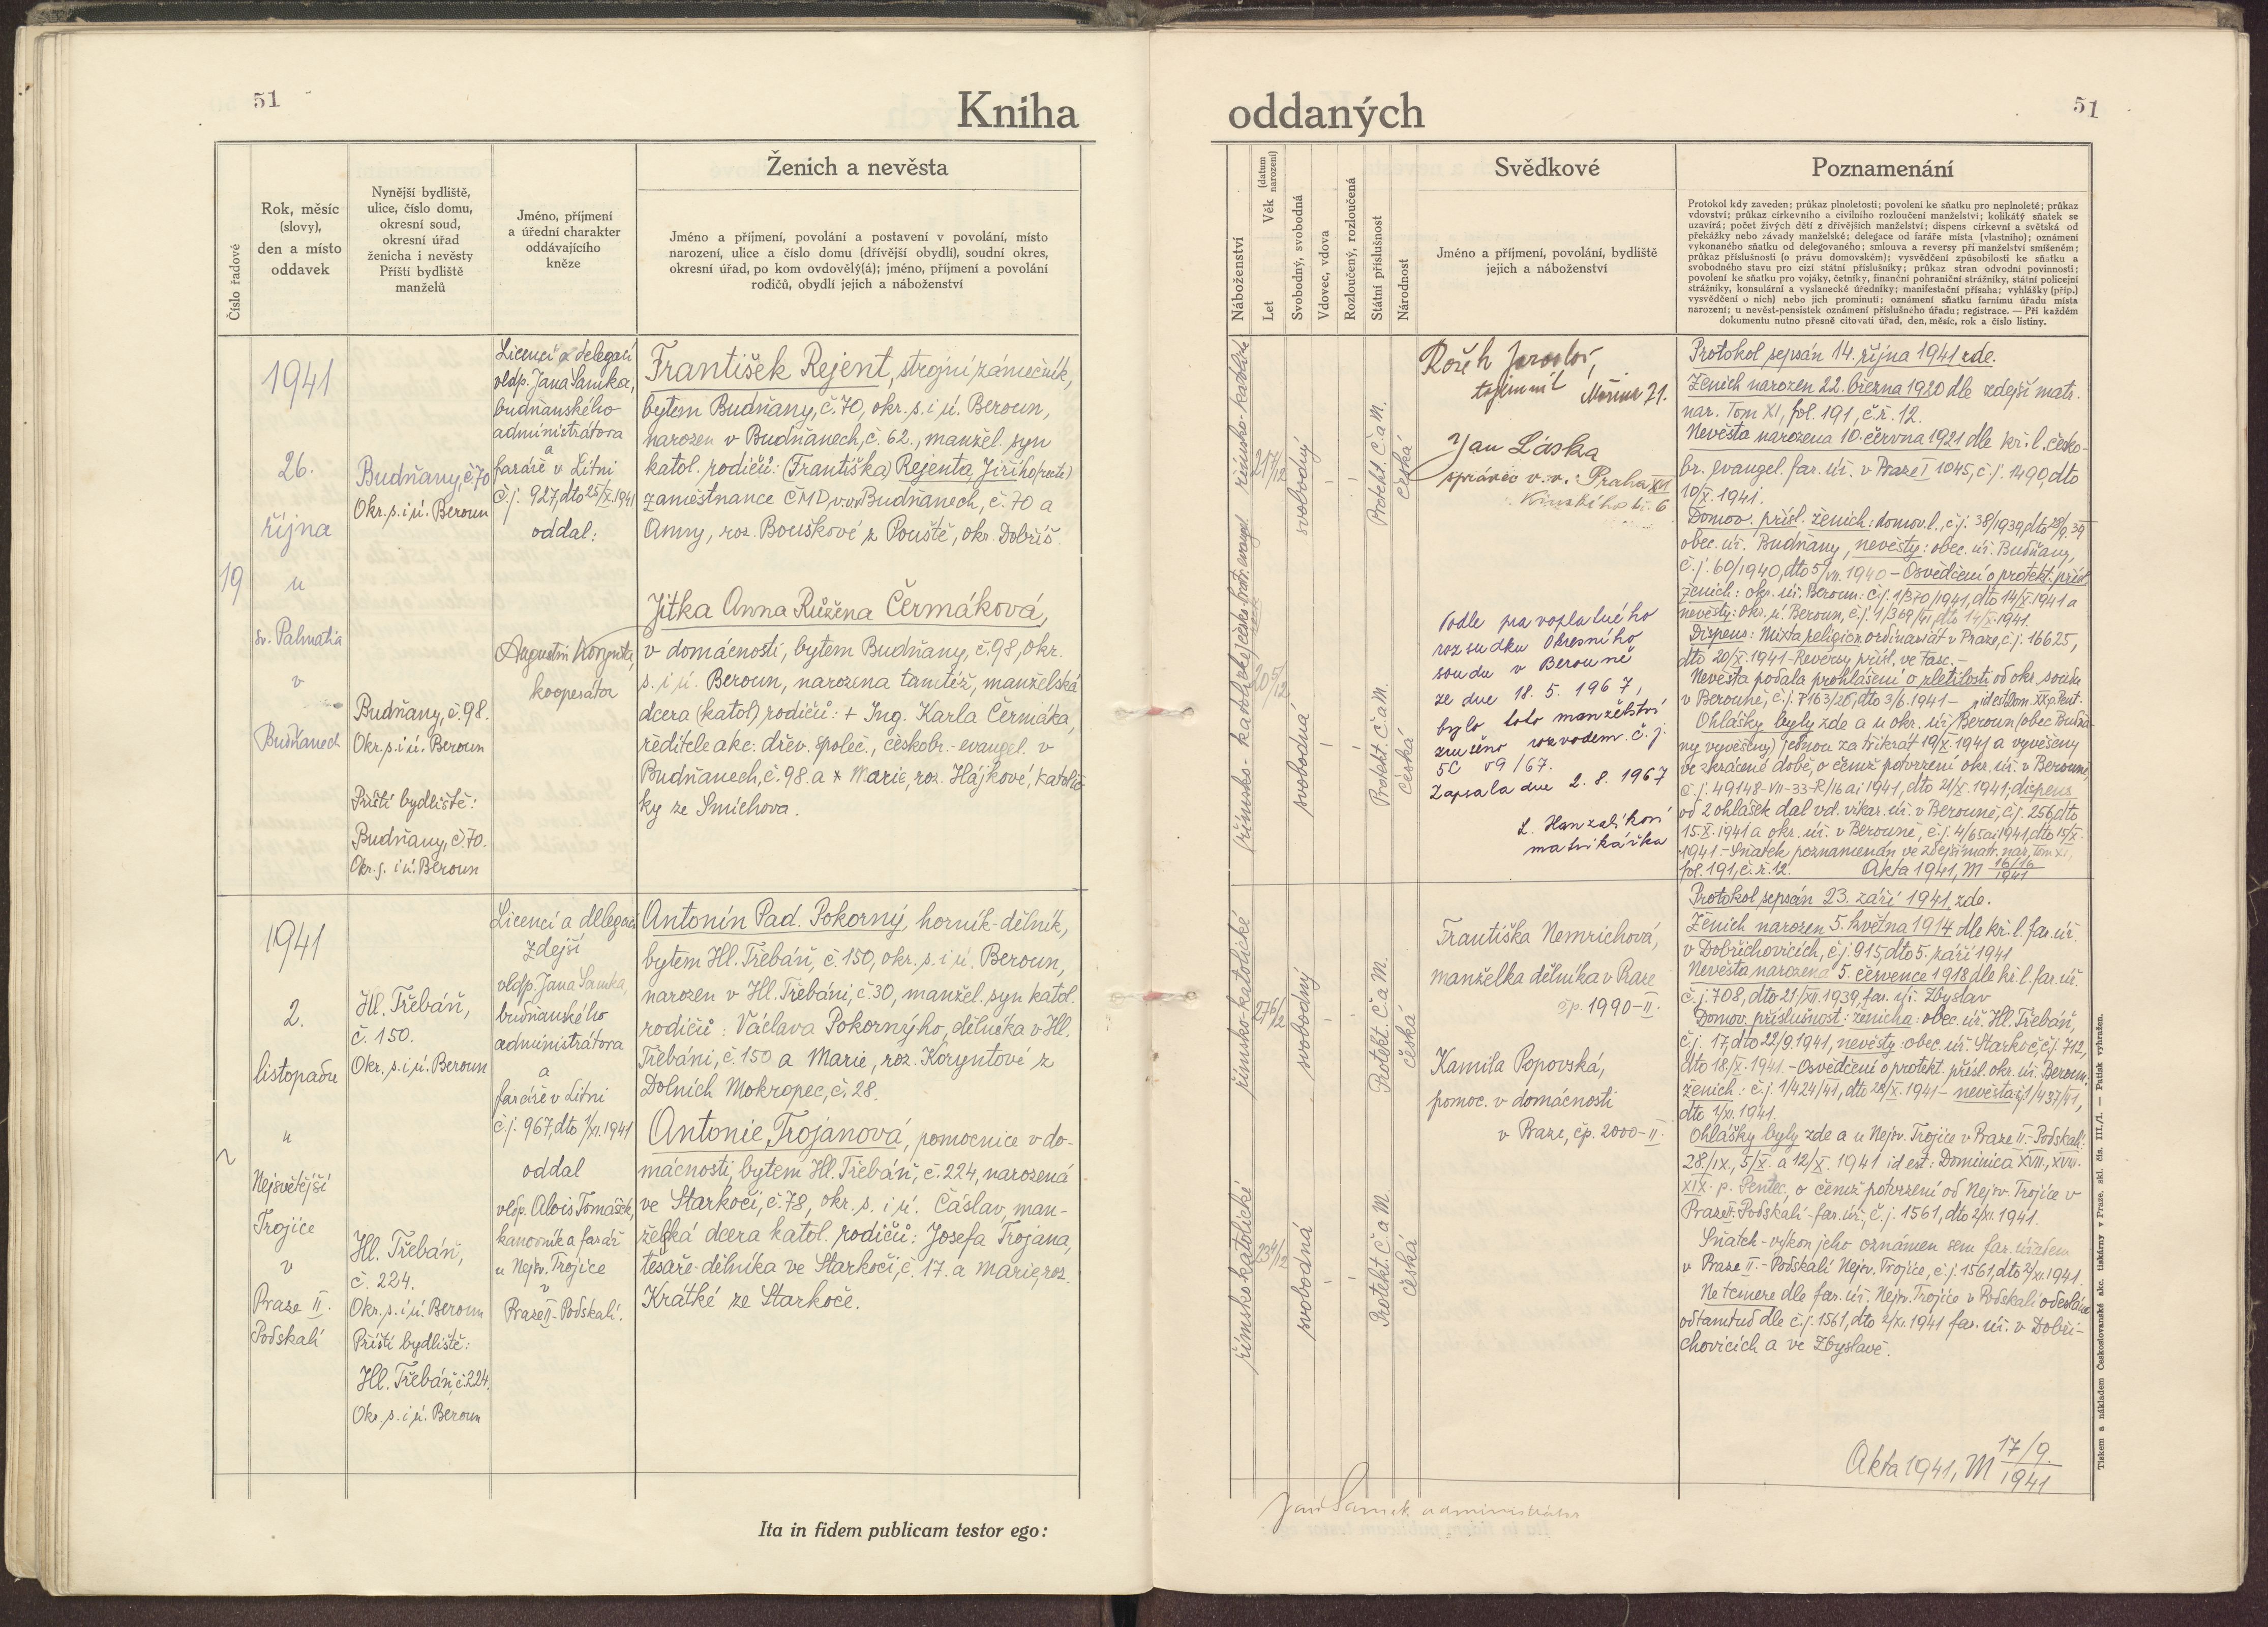 51
Kniha
Číslo řadové
Rok, měsíc
(slovy),
den a místo
oddavek
Nynější bydliště,
ulice, číslo domu,
okresní soud,
okresní úřad
ženicha i nevěsty
Příští bydliště
manželů
Jméno, příjmení
a úřední charakter
oddávajícího
kněze
Ženich a nevěsta
Jméno a příjmení, povolání a postavení v povolání, místo
narození, ulice a číslo domu (dřívější obydlí), soudní okres,
okresní úřad, po kom ovdověly(á); jméno, příjmení a povolání
rodičů, obydlí jejich a náboženství
19
1941
26.
října
u
sv. Palmatia
v
Budňanech
Budňany, č. 70
Okr. s. i ú. Beroun
Budňany, č. 98.
Okr. s. i ú. Beroun
Příští bydliště:
Budňany, č. 70.
Okr. s. i ú. Beroun
Licencí a delegací
vldp. Jana Samka,
budňanského
administrátora
a
faráře v Litni
č. j. 927, dto 25/X. 1941
oddal:
Augustin Korynta,
kooperátor
František Rejent, strojní zámečník,
bytem Budňany, č. 70, okr. s. i ú. Beroun,
narozen v Budňanech, č. 62., manžel. syn
katol. rodičů: (Františka) Rejenta, Jiřího (recte)
zaměstnance ČMD, v Budňanech, č. 70 a
Anny, roz. Bouškové z Pouště, okr. Dobříš.
Jitka Anna Růžena Čermáková,
v domácnosti, bytem Budňany, č. 98, okr.
s. i ú. Beroun, narozena tamtéž, manželská
dcera (katol) rodičů: + Ing. Karla Čermáka,
ředitele akc. dřev. společ., českobr.-evangel. v
Budňanech, č. 98. a + Marie, roz. Hájkové, katolič-
ky ze Smíchova.
1941
2.
listopadu
u
Nejsvětější
Trojice
v
Praze II.
Podskalí
Hl. Třebáň,
č. 150.
Okr. s. i ú. Beroun
Hl. Třebáň,
č. 224.
Okr. s. i ú. Beroun
Příští bydliště:
Hl. Třebáň č. 224.
Okr. s. i ú. Beroun
Licencí a delegací
zdejší
vldp. Jana Samka,
budňanského
administrátora
a
faráře v Litni
č. j. 967, dto 1/XI. 1941
oddal
vldp. Alois Tomášek,
kanovník a farář
u Nejsv. Trojice
v
Praze II - Podskalí.
Antonín Pad. Pokorný, horník-dělník,
bytem Hl. Třebáň, č. 150, okr. s. i ú. Beroun,
narozen v Hl. Třebáni, č. 30, manžel. syn katol.
rodičů: Václava Pokorného, dělníka v Hl.
Třebáni, č. 150 a Marie, roz. Koryntové z
Dolních Mokropec, č. 28.
Antonie Trojanová, pomocnice v do-
mácnosti, bytem Hl. Třebáň, č. 224, narozená
ve Starkoči, č. 78, okr. s. i ú. Čáslav, man-
želská dcera katol. rodičů: Josefa Trojana,
tesaře-dělníka ve Starkoči, č. 17. a Marie, roz.
Krátké ze Starkoče.
Ita in fidem publicam testor ego:
oddaných
51
Náboženství
Let Věk (datum narození)
Svobodný, svobodná
Vdovec, vdova
Rozloučený, rozloučená
Státní příslušnost
Národnost
Svědkové
Jméno a příjmení, povolání, bydliště
jejich a náboženství
Poznamenání
Protokol kdy zaveden; průkaz plnoletosti; povolení ke sňatku pro neplnoleté; průkaz
vdovství; průkaz církevního a civilního rozloučení manželství; kolikátý sňatek se
uzavírá; počet živých dětí z dřívějších manželství; dispens církevní a světská od
překážky nebo závady manželské; delegace od faráře místa (vlastního); oznámení
vykonaného sňatku od delegovaného; smlouva a reversy při manželství smíšeném;
průkaz příslušnosti (o právu domovském); vysvědčení způsobilosti ke sňatku a
svobodného stavu pro cizí státní příslušníky; průkaz stran odvodní povinnosti;
povolení ke sňatku pro vojáky, četníky, finanční pohraniční strážníky, státní policejní
strážníky, konsulární a vyslanecké úředníky; manifestační přísaha; vyhlášky (příp.)
vysvědčení o nich) nebo jich prominutí; oznámení sňatku farnímu úřadu místa
narození; u nevěst-pensistek oznámení příslušného úřadu; registrace. — Při každém
dokumentu nutno přesně citovati úřad, den, měsíc, rok a číslo listiny.
římsko-katolické
21 7/12
svobodný
Protekt. Č. a M.
česká
20 5/12
svobodná
Protekt. Č. a M.
česká
Jan Láska
správce v. v. Praha XVI
Podle pravoplatného
rozsudku Okresního
soudu v Berouně
ze dne 18. 5. 1967,
bylo toto manželství
zrušeno rozvodem. č. j.
5C 59/67.
Zapsala dne 2. 8. 1967
L. Hanzalíková
matrikářka
Protokol sepsán 14. října 1941 zde.
Ženich narozen 22. března 1920 dle zdejší matr.
nar. Tom XI, fol. 191, č. ř. 12.
Nevěsta narozena 10. června 1921 dle kř. l. česko-
br. evangel. far. úř. v Praze I 1045, č. j. 1490, dto
10/X. 1941.
Domov. přísl. ženich: domov. l., č. j. 38/1939, dto 28/9. 39
obec. úř. Budňany, nevěsty: obec. úř. Budňany,
č. j. 60/1940, dto 5/VII. 1940 – Osvědčení o protekt. přísl.
ženich: okr. úř. Beroun: č. j. 1/370/1941, dto 14/X. 1941 a
nevěsty: okr. ú. Beroun, č. j. 1/369/41, dto 14/X. 1941.
Dispens: Mixta religion. ordinariát v Praze, č. j. 16625,
dto 20/X. 1941 - Reversy přísl. ve fasc. –
Nevěsta podala prohlášení o zletilosti od okr. soudu
v Berouně, č. j. P 163/26, dto 3/6. 1941 – id est Dom. XX p. Pent.
Ohlášky byly zde a u okr. úř. Beroun (obec Budňa-
ny vyvěšeny) jednou za třikrát 19/X. 1941 a vyvěšeny
ve zkrácené době, o čemž potvrzení okr. úř. v Berouně,
č. j. 49148-VII-33-R/16 ai 1941, dto 21/X. 1941; dispens
od 2 ohlášek dal vd. vikar. úř. v Berouně, č. j. 256, dto
15. X. 1941 a okr. úř. v Berouně, č. j. 4/65 ai 1941, dto 15/X.
1941. – Sňatek poznamenán ve zdejší matr. nar. Tom XI,
fol. 191, č. ř. 12. Akta 1941, M 16/16 1941
římsko-katolické
27 6/12
svobodný
Protekt. Č. a M.
česká
římsko-katolické
23 4/12
svobodná
Protekt. Č. a M
česká
Františka Nemrichová,
manželka dělníka v Praze
čp. 1990-II.
Kamila Popovská,
pomoc. v domácnosti
v Praze, čp. 2000-II.
Protokol sepsán 23. září 1941 zde.
Ženich narozen 5. května 1914 dle kř. l. far. úř.
v Dobřichovicích, č. j. 915, dto 5. září 1941
Nevěsta narozena 5. července 1918 dle kř. l. far. úř.
č. j. 708, dto 21/XII. 1939, far. úř. Zbyslav
Domov. příslušnost: ženicha: obec. úř. Hl. Třebáň,
č. j. 17, dto 22/9. 1941, nevěsty: obec. úř. Starkoč, č. j. 712,
dto 18/X. 1941. – Osvědčení o protekt. přísl. okr. úř. Beroun.
ženich: č. j. 1/424/41, dto 28/X. 1941 – nevěsta: č. j. 1/437/41,
dto 1/XI. 1941.
Ohlášky byly zde a u Nejsv. Trojice v Praze II.-Podskalí:
28./IX., 5/X. a 12/X. 1941 id est: Dominica XVII, XVIII.
XIX. p. Pentec, o čemž potvrzení od Nejsv. Trojice v
Praze II-Podskalí - far. úř., č. j. 1561, dto 2/XI. 1941.
Sňatek - výkon jeho oznámen sem far. úřadem
v Praze II. - Podskalí Nejsv. Trojice, č. j. 1561, dto 2/XI. 1941.
Ne temere dle far. úř. Nejsv. Trojice v Podskalí odesláno
odtamtud dle č. j. 1561, dto 2/XI. 1941 far. úř. v Dobři-
chovicích a ve Zbyslavě.
Akta 1941, M 17/9. 1941
Jan Samek administrátor
Tiskem a nákladem Československé akc. tiskárny v Praze. skl. čís. III./1. — Patisk vyhražen.